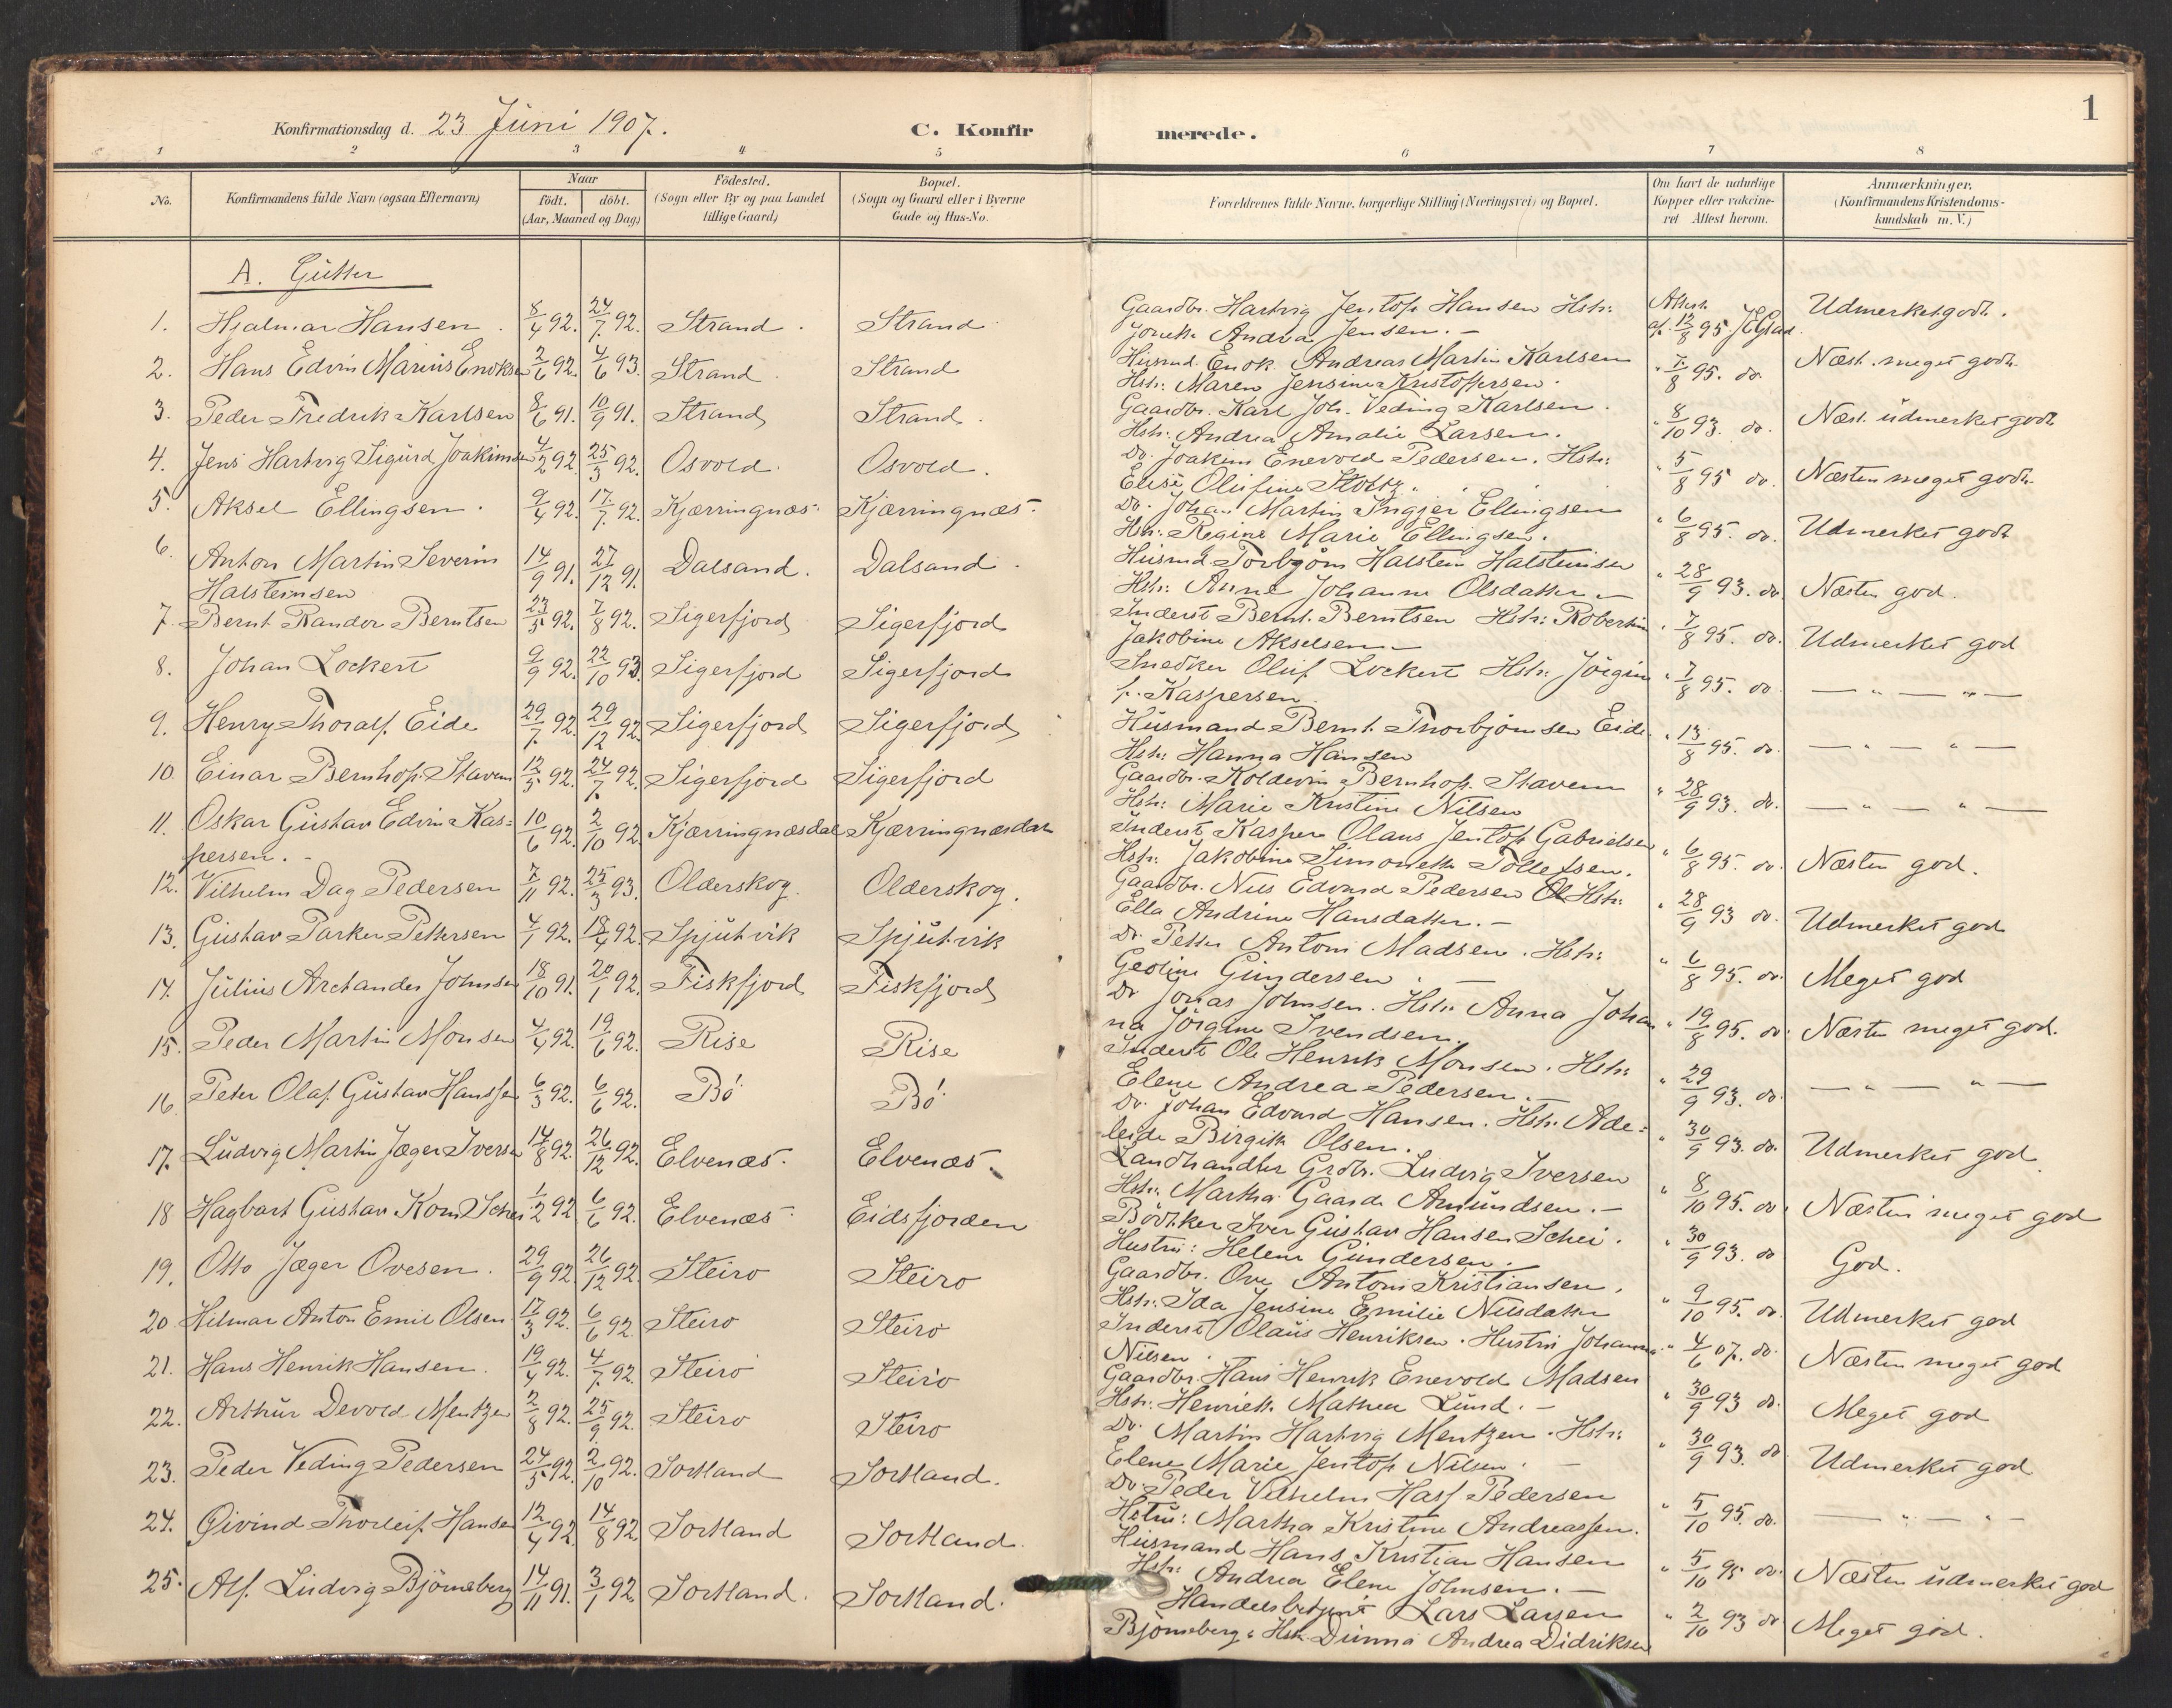 Konfirmationsdag d. 23 Juni 1907. C. Konfirmerede. 1
1 2 3 4 5 6 7 8
No. Konfirmandens fulde Navn (ogsaa Efternavn) Naar født. døbt. (Aar, Maaned og Dag) Födested. (Sogn eller By og paa Landet tillige Gaard) Bopæl. (Sogn og Gaard eller i Byerne Gade og Hus-No. Forældrenes fulde Navne, borgerlige Stilling (Næringsvei) og Bopæl. Om havt de naturlige Kopper eller vaccineret Attest herom. Anmærkninger. (Konfirmandens Kristendomskundskab m.V.)
A. Gutter
1. Hjalmar Hansen. 8/4 92. 24/7 92. Strand. Strand. Gaardbr. Hartvig Jentoft Hansen Hstr: Attest Udmerket godt.
Andrea Jensen. - af 12/8 95.
2. Hans Edvin Marius Enoksen 2/6 92. 4/6 93. Strand. Strand Husmd. Enok Andreas Martin Karlsen " 7/8 95. do. Næst. meget godt.
Hstr: Maren Jensine Kristoffersen.
3. Peder Fredrik Karlsen 8/6 91. 10/9 91. Strand Strand. Gaardbr. Karl Joh. Veding Karlsen. " 8/10 93. do. Næst. udmerket godt
Hstr: Andrea Amalie Larsen.
4. Jens Hartvig Sigurd Joakimsen 4/2 92. 25/5 92. Osvold. Osvold. Do. Joakim Enevold Pedersen. Hstr: " 5/8 95 do. Næsten meget godt.
Elise Olufine Stoltz.
5. Aksel Ellingsen. 9/4 92. 17/7 92. Kjærringnæs. Kjærringnæs. Do. Johan Martin Ingjer Ellingsen " 6/8 95. do. Udmerket godt
Hstr: Regine Marie Ellingsen.
6. Anton Martin Severin 14/9 91. 27/12 91. Dalsand. Dalsand. Husmd Torbjørn Halstein Halsteinsen " 28/9 93. do. Næsten god.
Halsteinsen Hstr: Anne Johanne Olsdatter -
7. Bernt Randor Berntsen 23/5 92. 7/8 92. Sigerfjord Sigerfjord Inderst Bernt Berntsen Hstr: " 7/8 95. do. Udmerket god
Jakobine Akselsen -
8. Johan Lockert 9/9 92. 22/10 93. Sigerfjord Sigerfjord Snedker Oluf Lockert Hstr. Jörgine " 7/8 95. do. — " — " —
f. Kaspersen.
9. Henry Thoralf Eide 29/7 92. 29/12 92. Sigerfjord Sigerfjord Husmand Bernt Thorbjørnsen Eide " 13/8 95. do. — " — " —
Hstr: Hanna Hansen
10. Einar Bernhof Stavem 12/5 92. 24/7 92. Sigerfjord Sigerfjord Gaardbr. Koldevin Bernhof Stavem " 28/9 93. do. — " — " —
Hstr: Marie Kristine Nilsen
11. Oskar Gustav Edvin Kas= 10/6 92. 2/10 92. Kjærringnæsdal Kjærringnæsdal Inderst Kasper Olaus Jentoft Gabrielsen " 6/8 95. do. Næsten god.
persen. - Hstr: Jakobine Simonette Tollefsen.
12. Vilhelm Dag Pedersen 7/11 92. 25/3 93. Olderskog. Olderskog. Gaardbr. Nils Edvard Pedersen Hstr: " 28/9 93 do. Udmerket god
Ella Andrine Hansdatter. -
13. Gustav Parker Pettersen 4/1 92. 18/4 92. Spjutvik Spjutvik Do. Petter Antoni Madsen. Hstr: " 6/8 95. do. Meget god
Geoline Gundersen.
14. Julius Archander Johnsen 18/10 91. 20/1 92. Fiskfjord Fiskfjord Do Jonas Johnsen. Hstr. Anna Johan " 19/8 95. do. Næsten meget god.
na Jörgine Svendsen.
15. Peder Martin Monsen 4/4 92. 19/6 92. Rise Rise Inderst Ole Henrik Monsen. Hstr: " 29/9 93. do. — " — " —
Elene Andrea Pedersen. -
16. Peter Olaf Gustav Hanssen 6/3 92. 6/6 92. Bö Bö Do. Johan Edvard Hansen. Hstr. Ade= " 30/9 93. do. Udmerket god.
leide Birgitte Olsen.
17. Ludvig Martin Jæger Iversen 14/8 92. 26/12 92. Elvenæs. Elvenæs. Landhandler Grdbr. Ludvig Iversen " 8/10 95. do. Næsten meget god
Hstr: Martha Gaarde Amundsen. -
18 Hagbart Gustav Schei 1/2 92 6/6 92. Elvenæs. Eidsfjorden Bödtker Iver Gustav Hansen Schei. " 30/9 93. do God.
Hustru: Helene Gundersen.
19. Otto Jæger Ovesen. 29/9 92 26/12 92 Steiro Steiro Gaardbr. Ove Antoni Kristiansen. " 9/10 95. do. Udmerket god
Hstr: Ida Jensine Emilie Nilsdatter
20 Hilmar Anton Emil Olsen 17/3 92. 6/6 92 Steiro Steiro Inderst Olaus Henriksen. Hustru Johanna " 4/6 07. do. Næsten meget god
Nilsen.
21. Hans Henrik Hansen. 19/4 92. 4/7 92. Steiro Steiro Gaardbr. Hans Henrik Enevold Madsen " 30/9 93 do. Meget god
Hstr: Henriette Mathea Lund. -
22. Arthur Devold Mentzen 2/8 92. 25/9 92. Steiro Steiro Do. Martin Hartvig Mentzen. Hstr: " 30/9 93. do Udmerket god
Elene Marie Jentoft Nilsen. -
23. Peder Veding Pedersen 24/5 92. 2/10 92. Sortland Sortland. Do. Peder Vilhelm Hass Pedersen " 5/10 95. do. — " — " —
Hstru: Martha Kristine Andreassen.
24. Øivind Thorleif Hansen 12/4 92 14/8 92 Sortland Sortland. Husmand Hans Kristian Hansen " 5/10 95 do. Næsten udmerket god
Hstr: Andrea Elene Johnsen. -
25. Alf Ludvig Bjørneberg 14/11 91. 3/1 92. Sortland. Sortland. Handelsbetjent Lars Larsen " 2/10 93 do Meget god.
Bjørneberg. Hstr. Andrea Didriksen